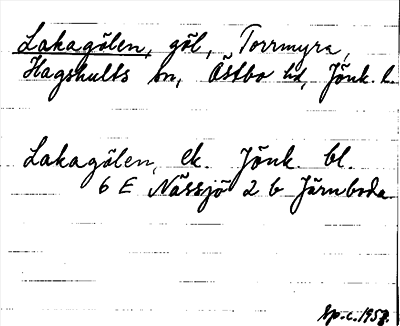 Lakagölen, göl, Torrmyra,
Hagshults sn, Östbo hd, Jönk. l.
Lakagölen, ek. Jönk. bl.
6 E Nässjö 2 b Järnboda
Ep.c.1958.